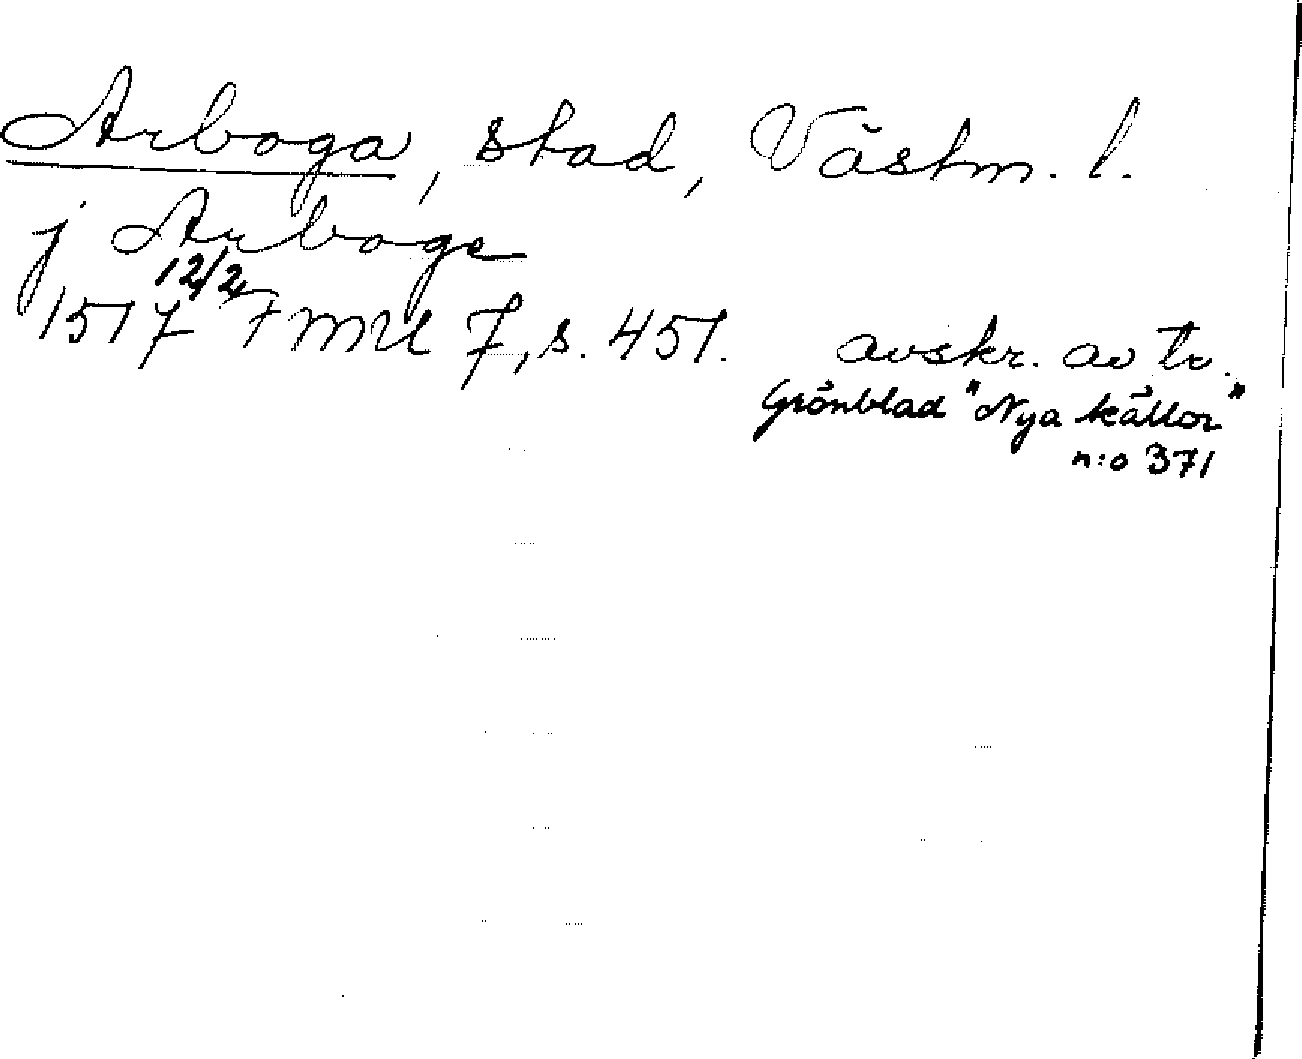 Arboga, stad, Västm. l.
j Arboge
1517 12/2 FMU 7, s. 451. avskr. av tr.
Grönblad "Nya källor"
n:o 371